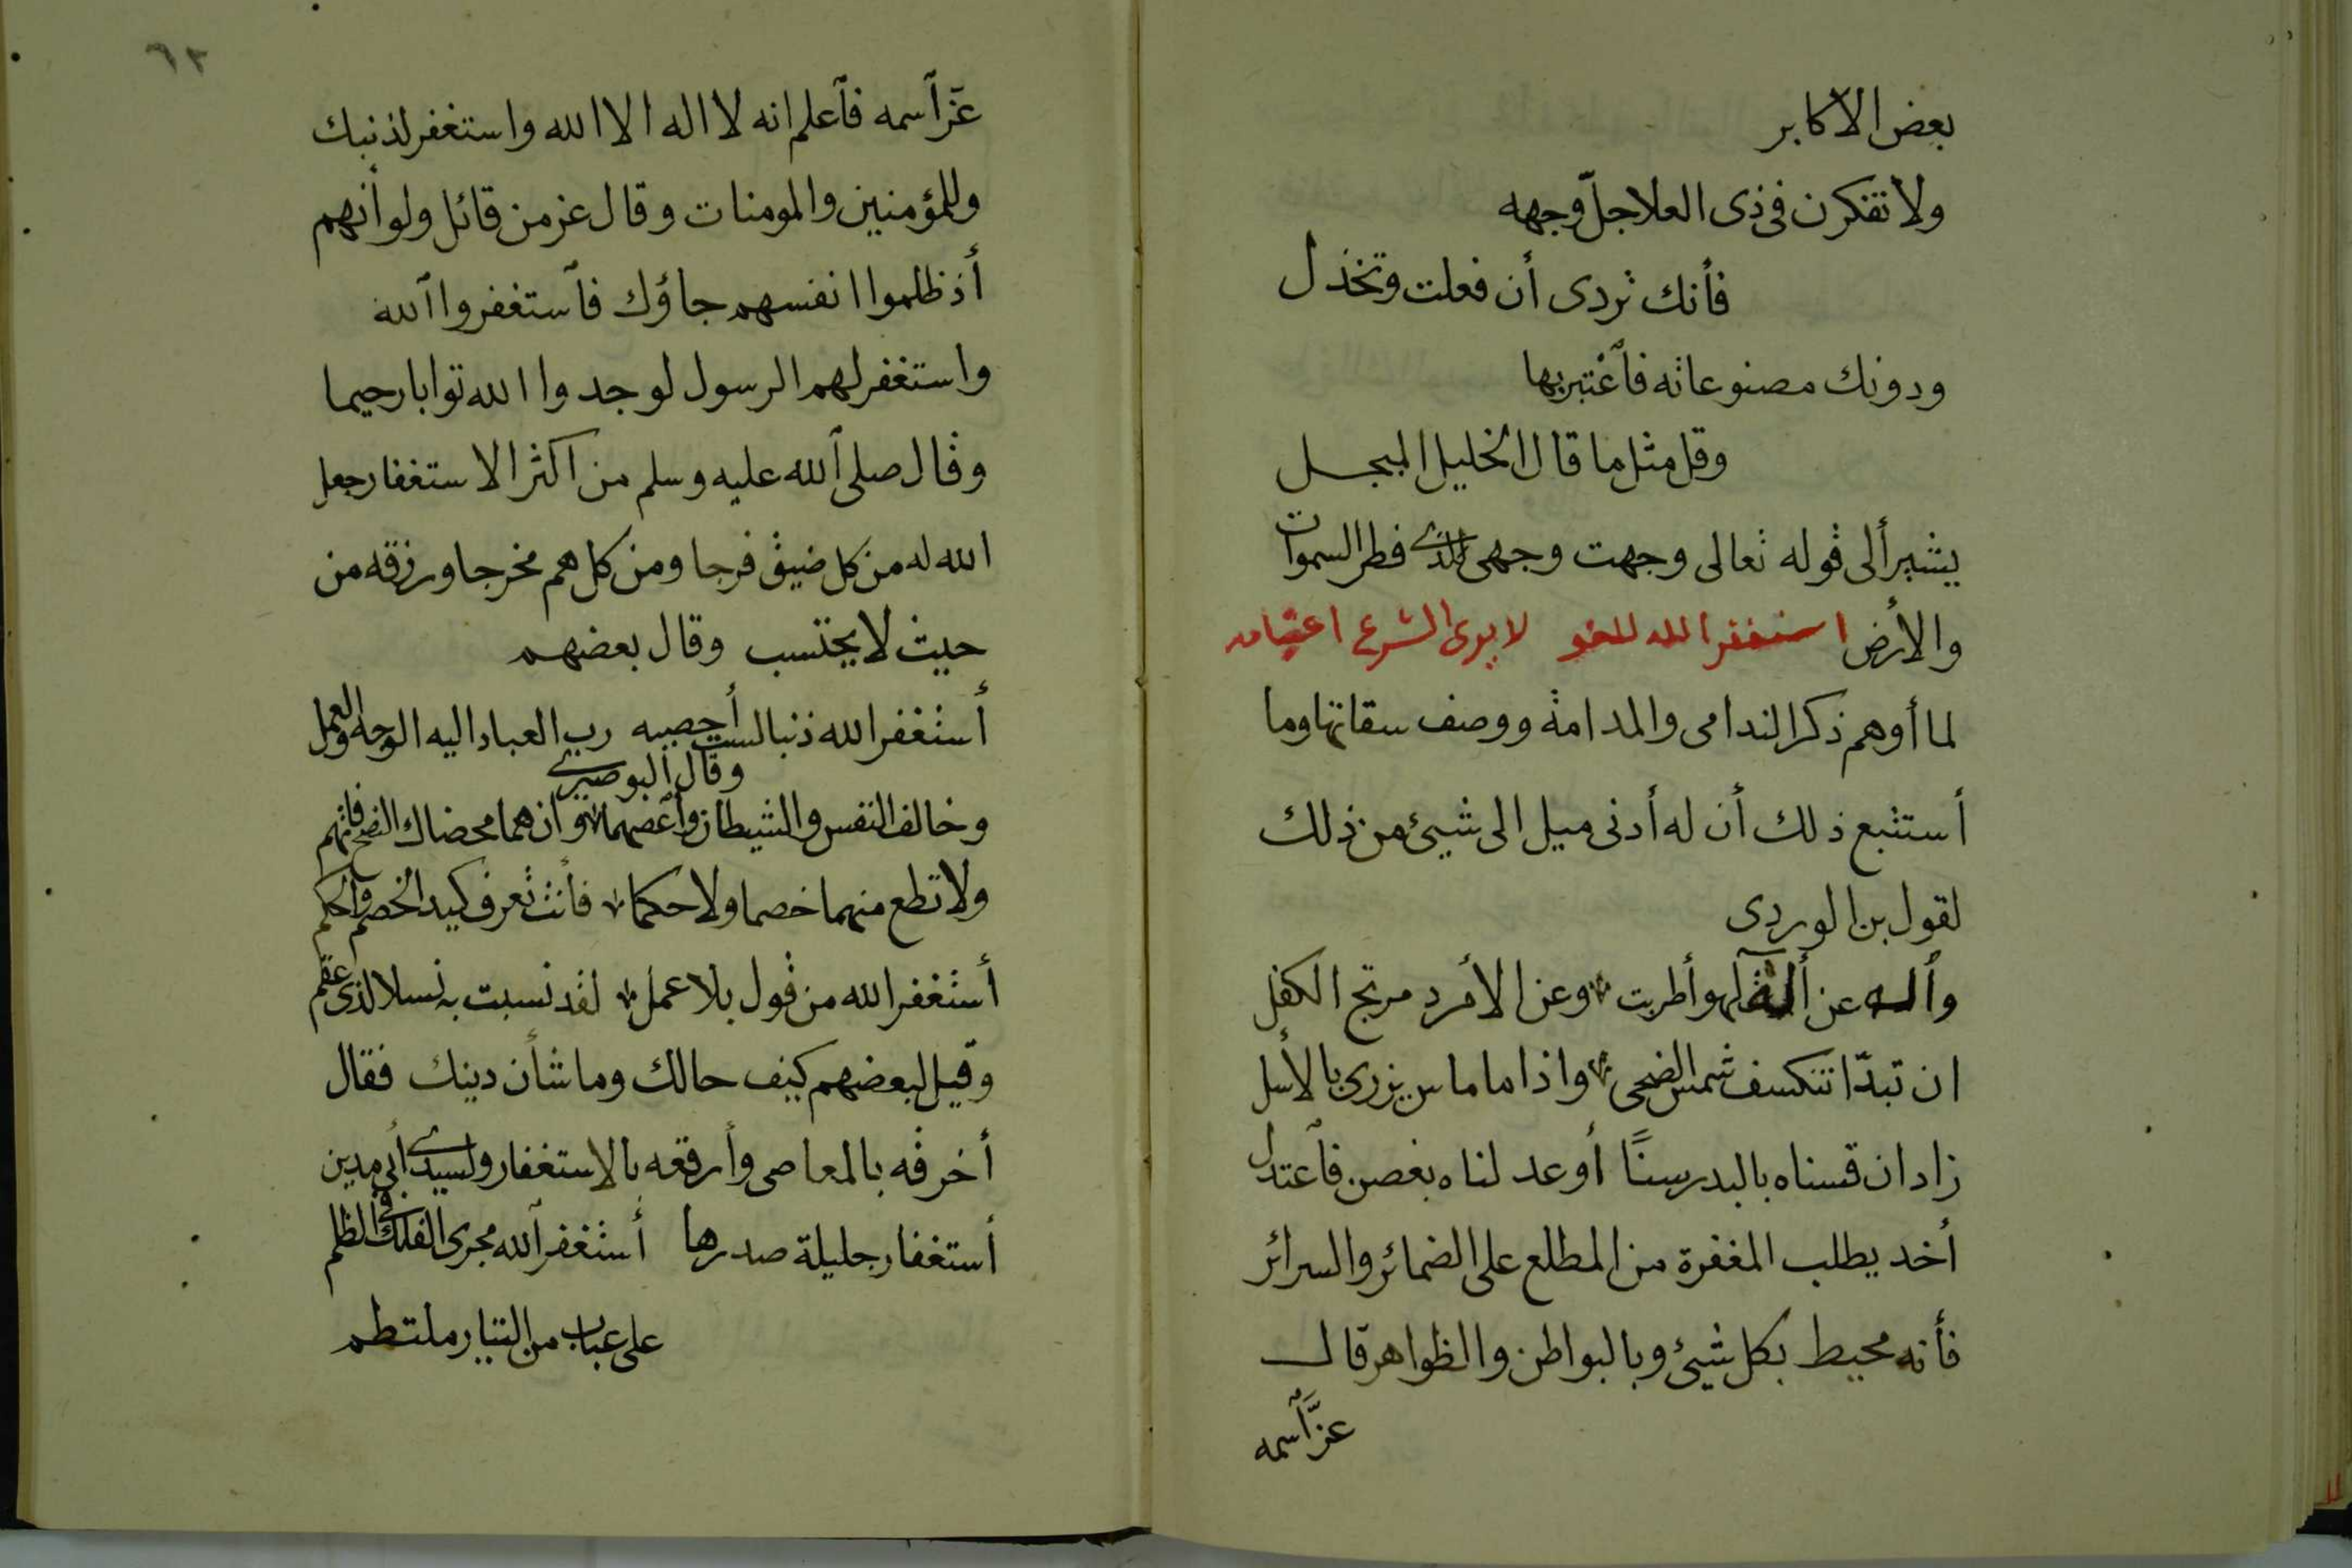 بعض الاكابر
ولا تفكرن فى ذى العلا جلّ وجهه
فأنك تردى أن فعلت وتخذل
ودونك مصنوعاته فآعتبر بها
وقل مثل ما قال الخليل المبجل
يشير ألى قوله تعالى وجهت وجهى للذى فطر السموات
والأرض استغفر الله للغو لا يرى الشرع اعتيامه
لما أوهم ذكر الندامى والمدامة ووصف سقاتها وما
أستتبع ذلك أن له أدنى ميل الى شيئ من ذلك
لقول بن الوردى
وأله عن ألة لهو أطربت وعن الأمرد مرتج الكفل
ان تبدّا تنكسف شمس الضحى واذا ما ماس يزرى بالأسل
زاد ان قسناه بالبدر سنًا أو عدلناه بغصن فآعتدل
أخد يطلب المغفرة من المطلع على الضمائر والسرائر
فأنه محيط بكل شيئ وبالبواطن والظواهر قال
عزّ آسمه
٦٢
عزّ آسمه فآعلم انه لا اله الا الله واستغفر لذنبك
وللمؤمنين والمومنات وقال عز من قائل ولو أنهم
أذ ظلموا انفسهم جاؤك فآستغفروا آلله
واستغفر لهم الرسول لوجدوا الله توابا رحيما
وقال صلى آلله عليه وسلم من اكثر الاستغفار جعل
الله له من كل ضيق فرجا ومن كل هم مخرجا ورزقه من
حيث لا يحتسب وقال بعضهم
أستغفر الله ذنبا لست أحصيه رب العباد اليه الوجه والعمل
وقال البوصيرى
وخالف النفس والشيطان وآعصهما وان هما محضاك النصح فاتهم
ولا تطع منهما خصما ولا حكما فأنت تعرف كيد الخصم والحكم
أستغفر الله من قول بلا عمل لقد نسبت به نسلا لذى عقم
وقيل لبعضهم كيف حالك وما شأن دينك فقال
أخرقه بالمعاصى وأرقعه بالاستغفار ولسيدى أبى مدين
أستغفار جليلة صدرها أستغفر آلله مجرى الفلك فى الظلم
على عباب من التيار ملتطم